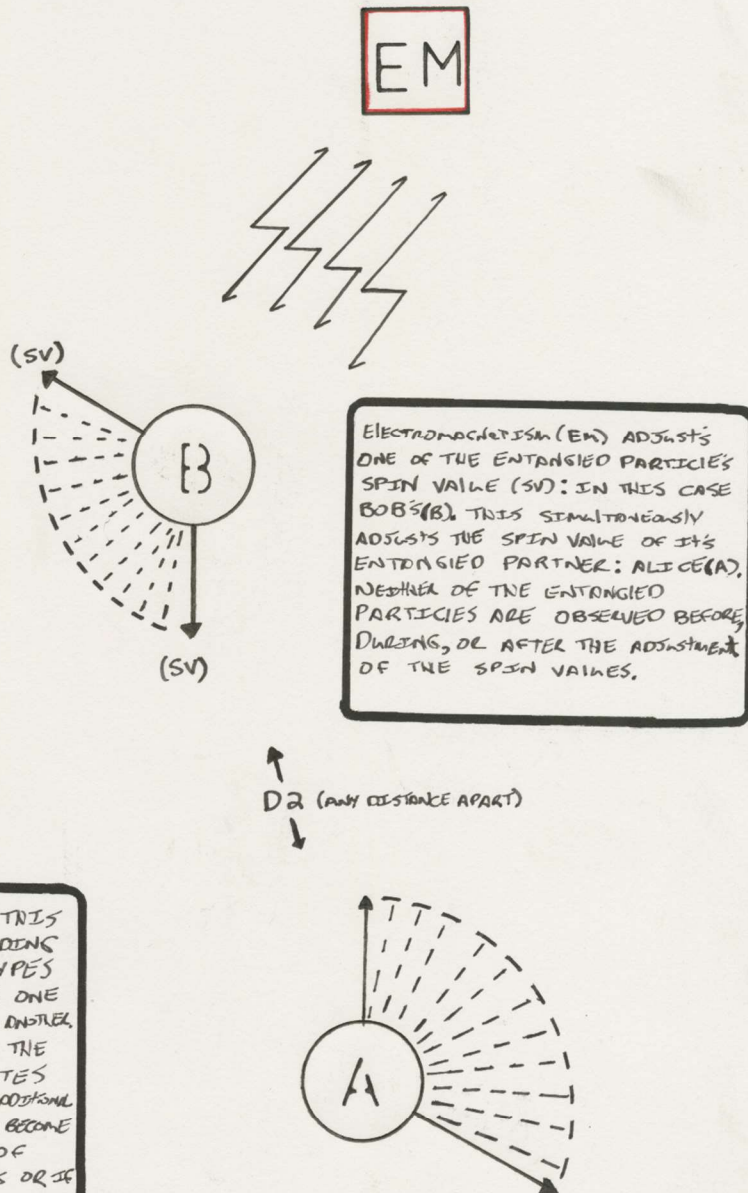 EM
(SV)
B
(SV)
ELECTROMAGNETISM (EM) ADJUST'S
ONE OF THE ENTANGLED PARTICLE'S
SPIN VALUE (SV): IN THIS CASE
BOB'S(B). THIS SIMULTANEOUSLY
ADJUSTS THE SPIN VALUE OF IT'S
ENTANGLED PARTNER: ALICE(A).
NEITHER OF THE ENTANGLED
PARTICLES ARE OBSERVED BEFORE,
DURING, OR AFTER THE ADJUSTMENT
OF THE SPIN VALUES.
D2 (ANY DISTANCE APART)
THIS
DING
YPES
ONE
ANOTHER.
THE
TES
ADDITIONAL
BECOME
OF
S OR IF
A